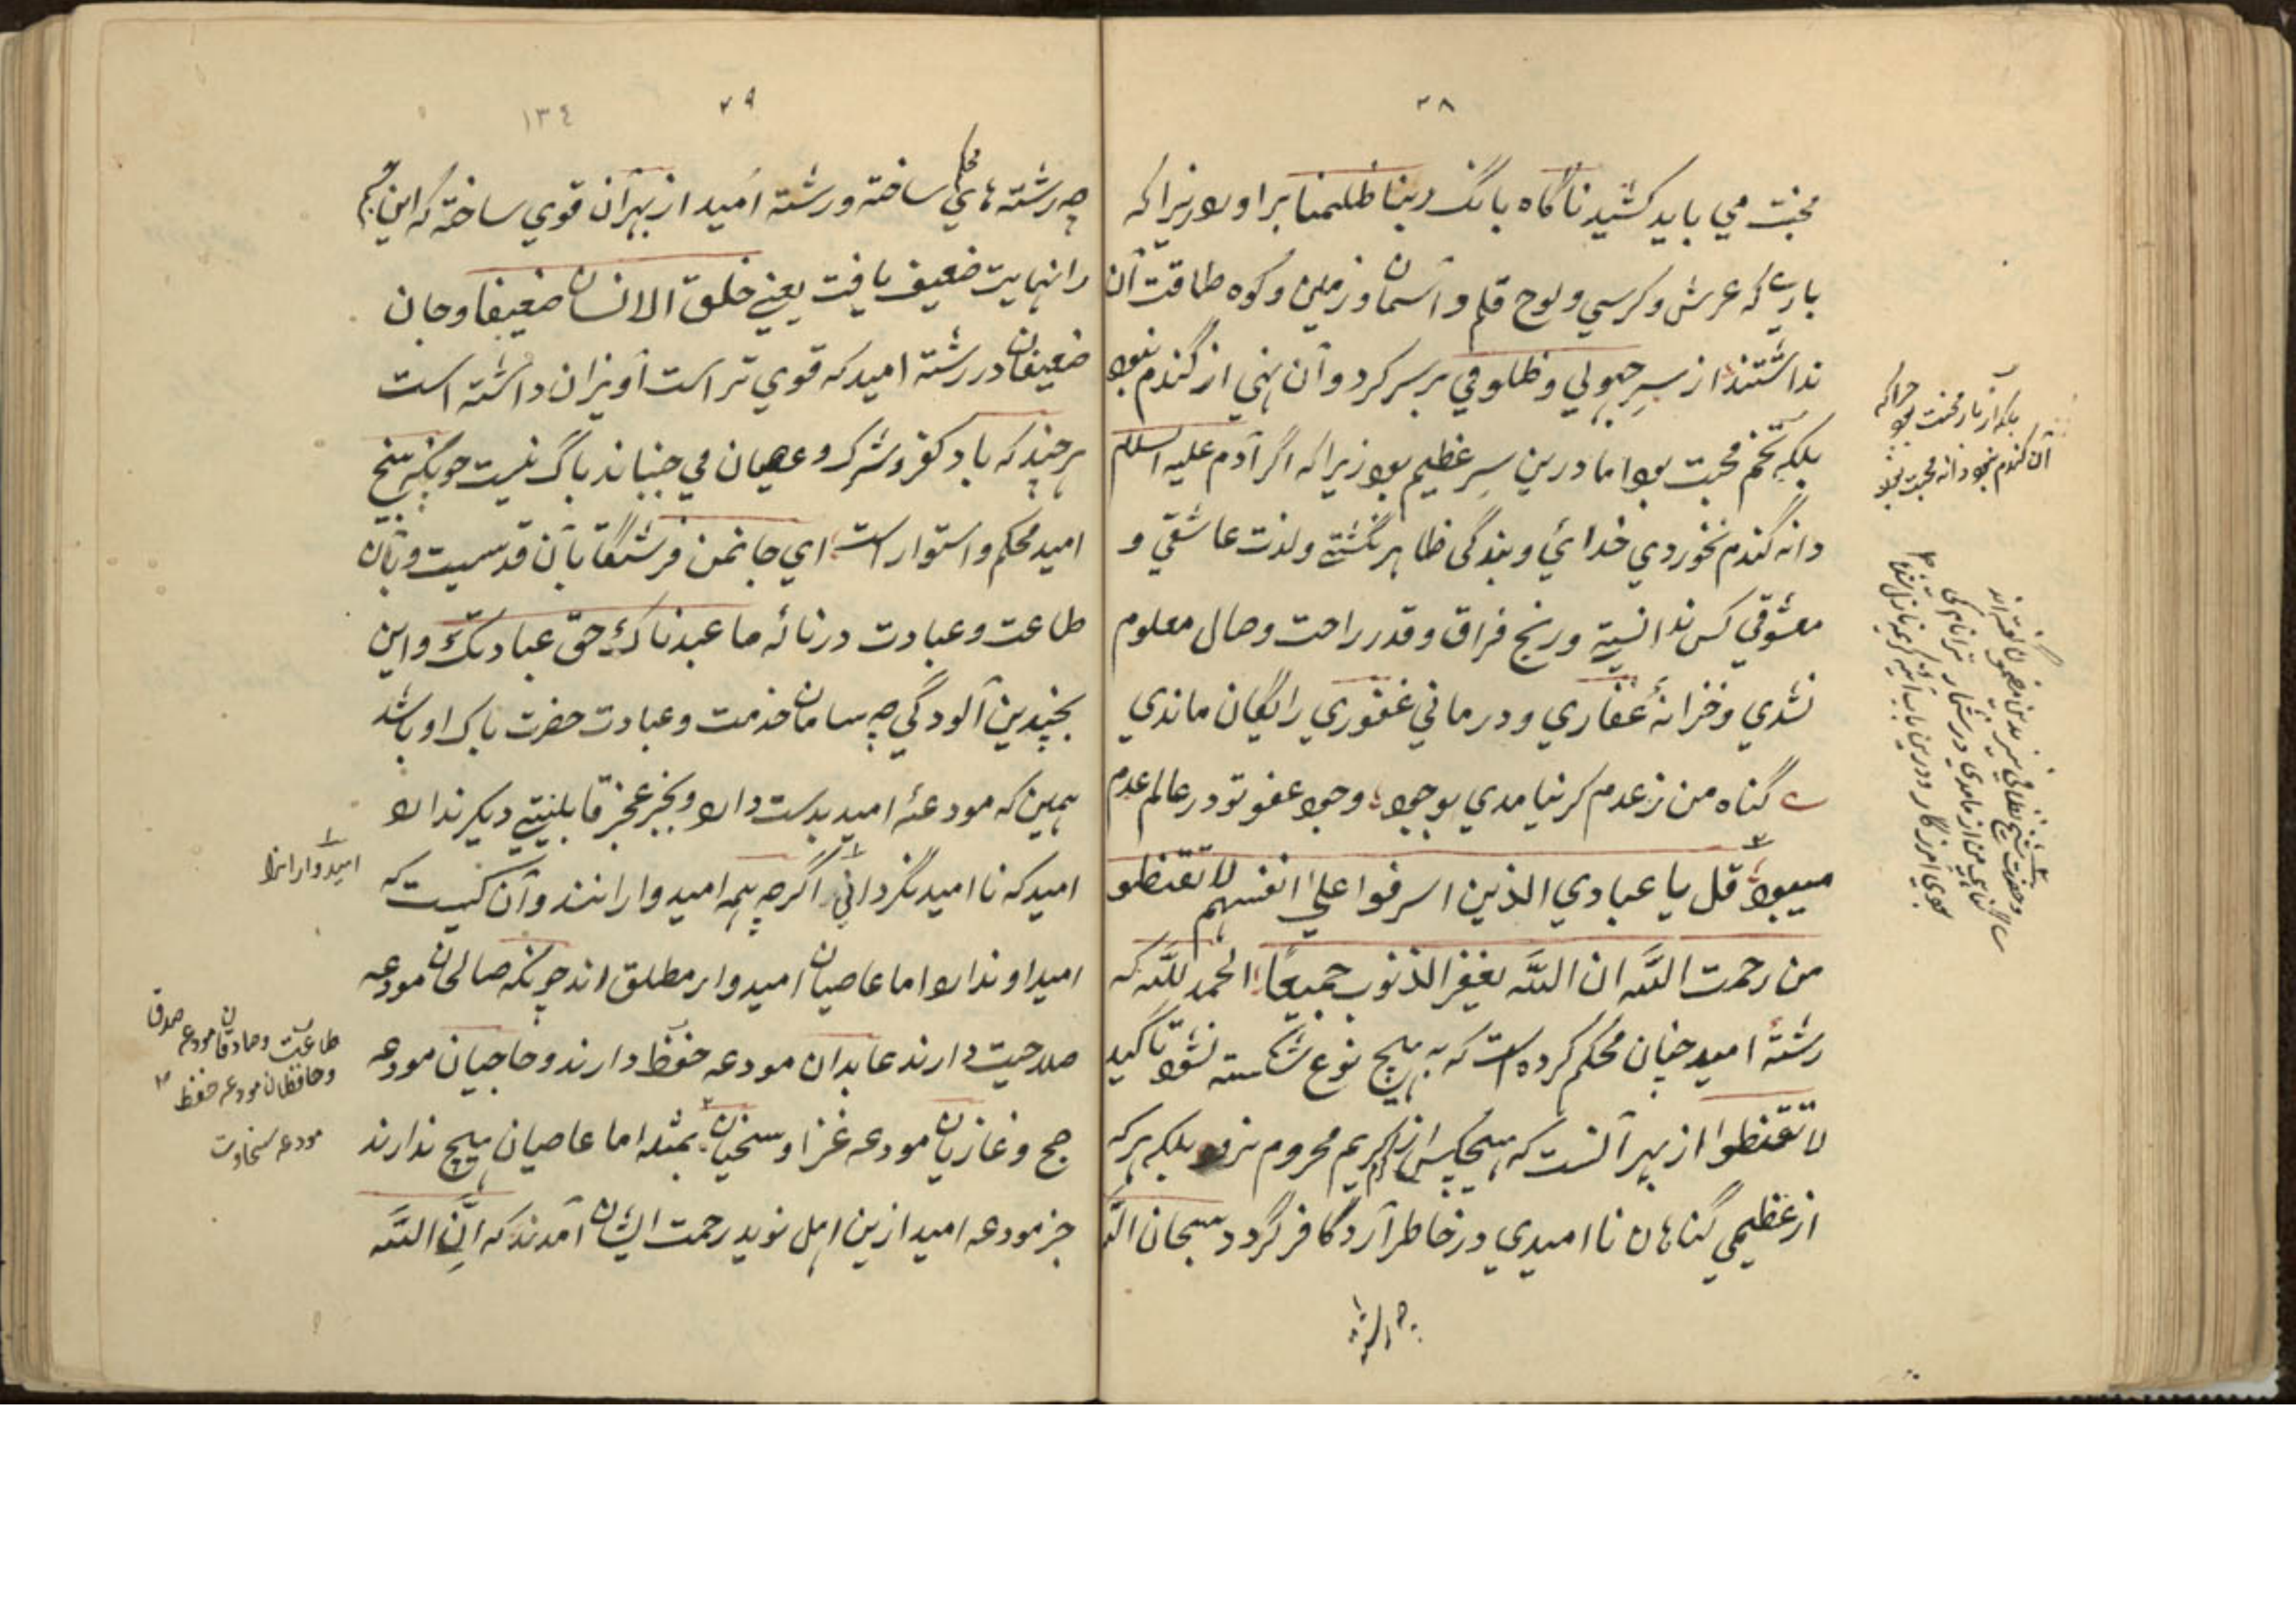 ٧٨
محنت مي بايد كشيد ناگاه بانگ ربنا ظلمنا برآورد زيراكه
باري كه عرش و كرسي و لوح قلم و آسمان و زمين و كوه طاقت آن
نداشتند از سر جهولي و ظلومي بر سر كرد و آن نهي از گندم نبود
بلكه تخم محبت بود اما درين سر عظيم بود زيراكه اگر آدم عليه السلام
دانه گندم نخوردي خدائي و بندگي ظاهر نگشتي ولذت عاشقي و
معشوقي كس ندانستي و رنج فراق و قدر راحت وصال معلوم
نشدي و خزانهٔ غفاري و درماني غفوري رايگان ماندي
گناه من ز عدم گر نيامدي بوجود وجود عفو تو در عالم عدم
ميبود قل يا عبادي الذين اسرفوا علي انفسهم لا تقنطوا
من رحمت الله ان الله يغفر الذنوب جميعًا الحمد لله كه
رشتهٔ اميد چنان محكم كرده است كه به هيچ نوع شكسته نشود تاكيد
لا تقنطوا از بهر آنست كه هيچكس از كريم محروم نرود بلكه هركه
از عظيمي گناهان نااميدي در خاطر آرد كافر گردد سبحان الله
بلكه از بار محنت بود چراكه
آن گندم نبود دانه محبت بود
چه رشته
٧٩
١٣٤
چه رشته هاي محكم ساخته و رشته اميد از بهر آن قوي ساخته كه اين
را نهايت ضعيف يافت يعني خلق الانسان ضعيفا و جان
ضعيفان در رشته اميد كه قوي تر است آويزان داشته است
هر چند كه باد كفر و شرك و عصيان مي جنباند باك نيست چونكه بيخ
اميد محكم و استوار است اي جان من فرشتگان بآن قدسيت و بآن
طاعت و عبادت در نالهٔ ما عبدناك حق عبادتك و اين
بچندين آلودگي چه سامان خدمت و عبادت حضرت پاك او باشد
همين كه مودعهٔ اميد بدست دارد و بجز عجز قابليتي ديگر ندارد
اميد كه نااميد نگرداني اگرچه همه اميدوارانند و آن كيست كه
اميد او ندارد اما عاصيان اميدوار مطلق اند چونكه صالحان مودعه
صلاحيت دارند عابدان مودعه حفظ دارند و حاجيان مودعه
حج و غازيان مودعه غزا و سخيان بمثله اما عاصيان هيچ ندارند
جز مودعه اميد ازين اهل نويد رحمت ايشان آمدند كه ان الله
اميدوارانرا
طاعت و صادقان مودعه صدق
و حافظان مودعه حفظ
مودعه سخاوت